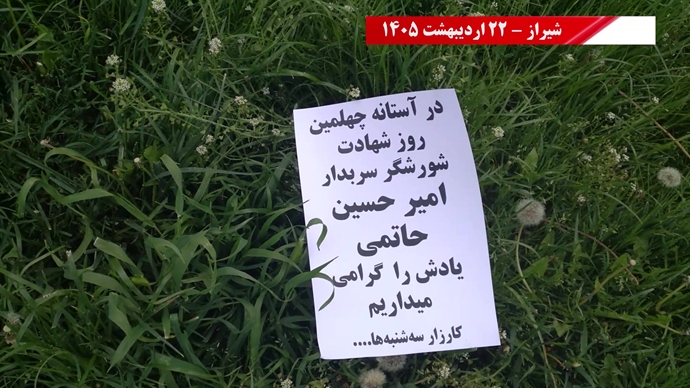 شیراز - ۲۲ اردیبهشت ۱۴۰۵
در آستانه چهلمین
روز شهادت
شورشگر سربدار
امیر حسین
حاتمی
یادش را گرامی
میداریم
کارزار سه‌شنبه‌ها....